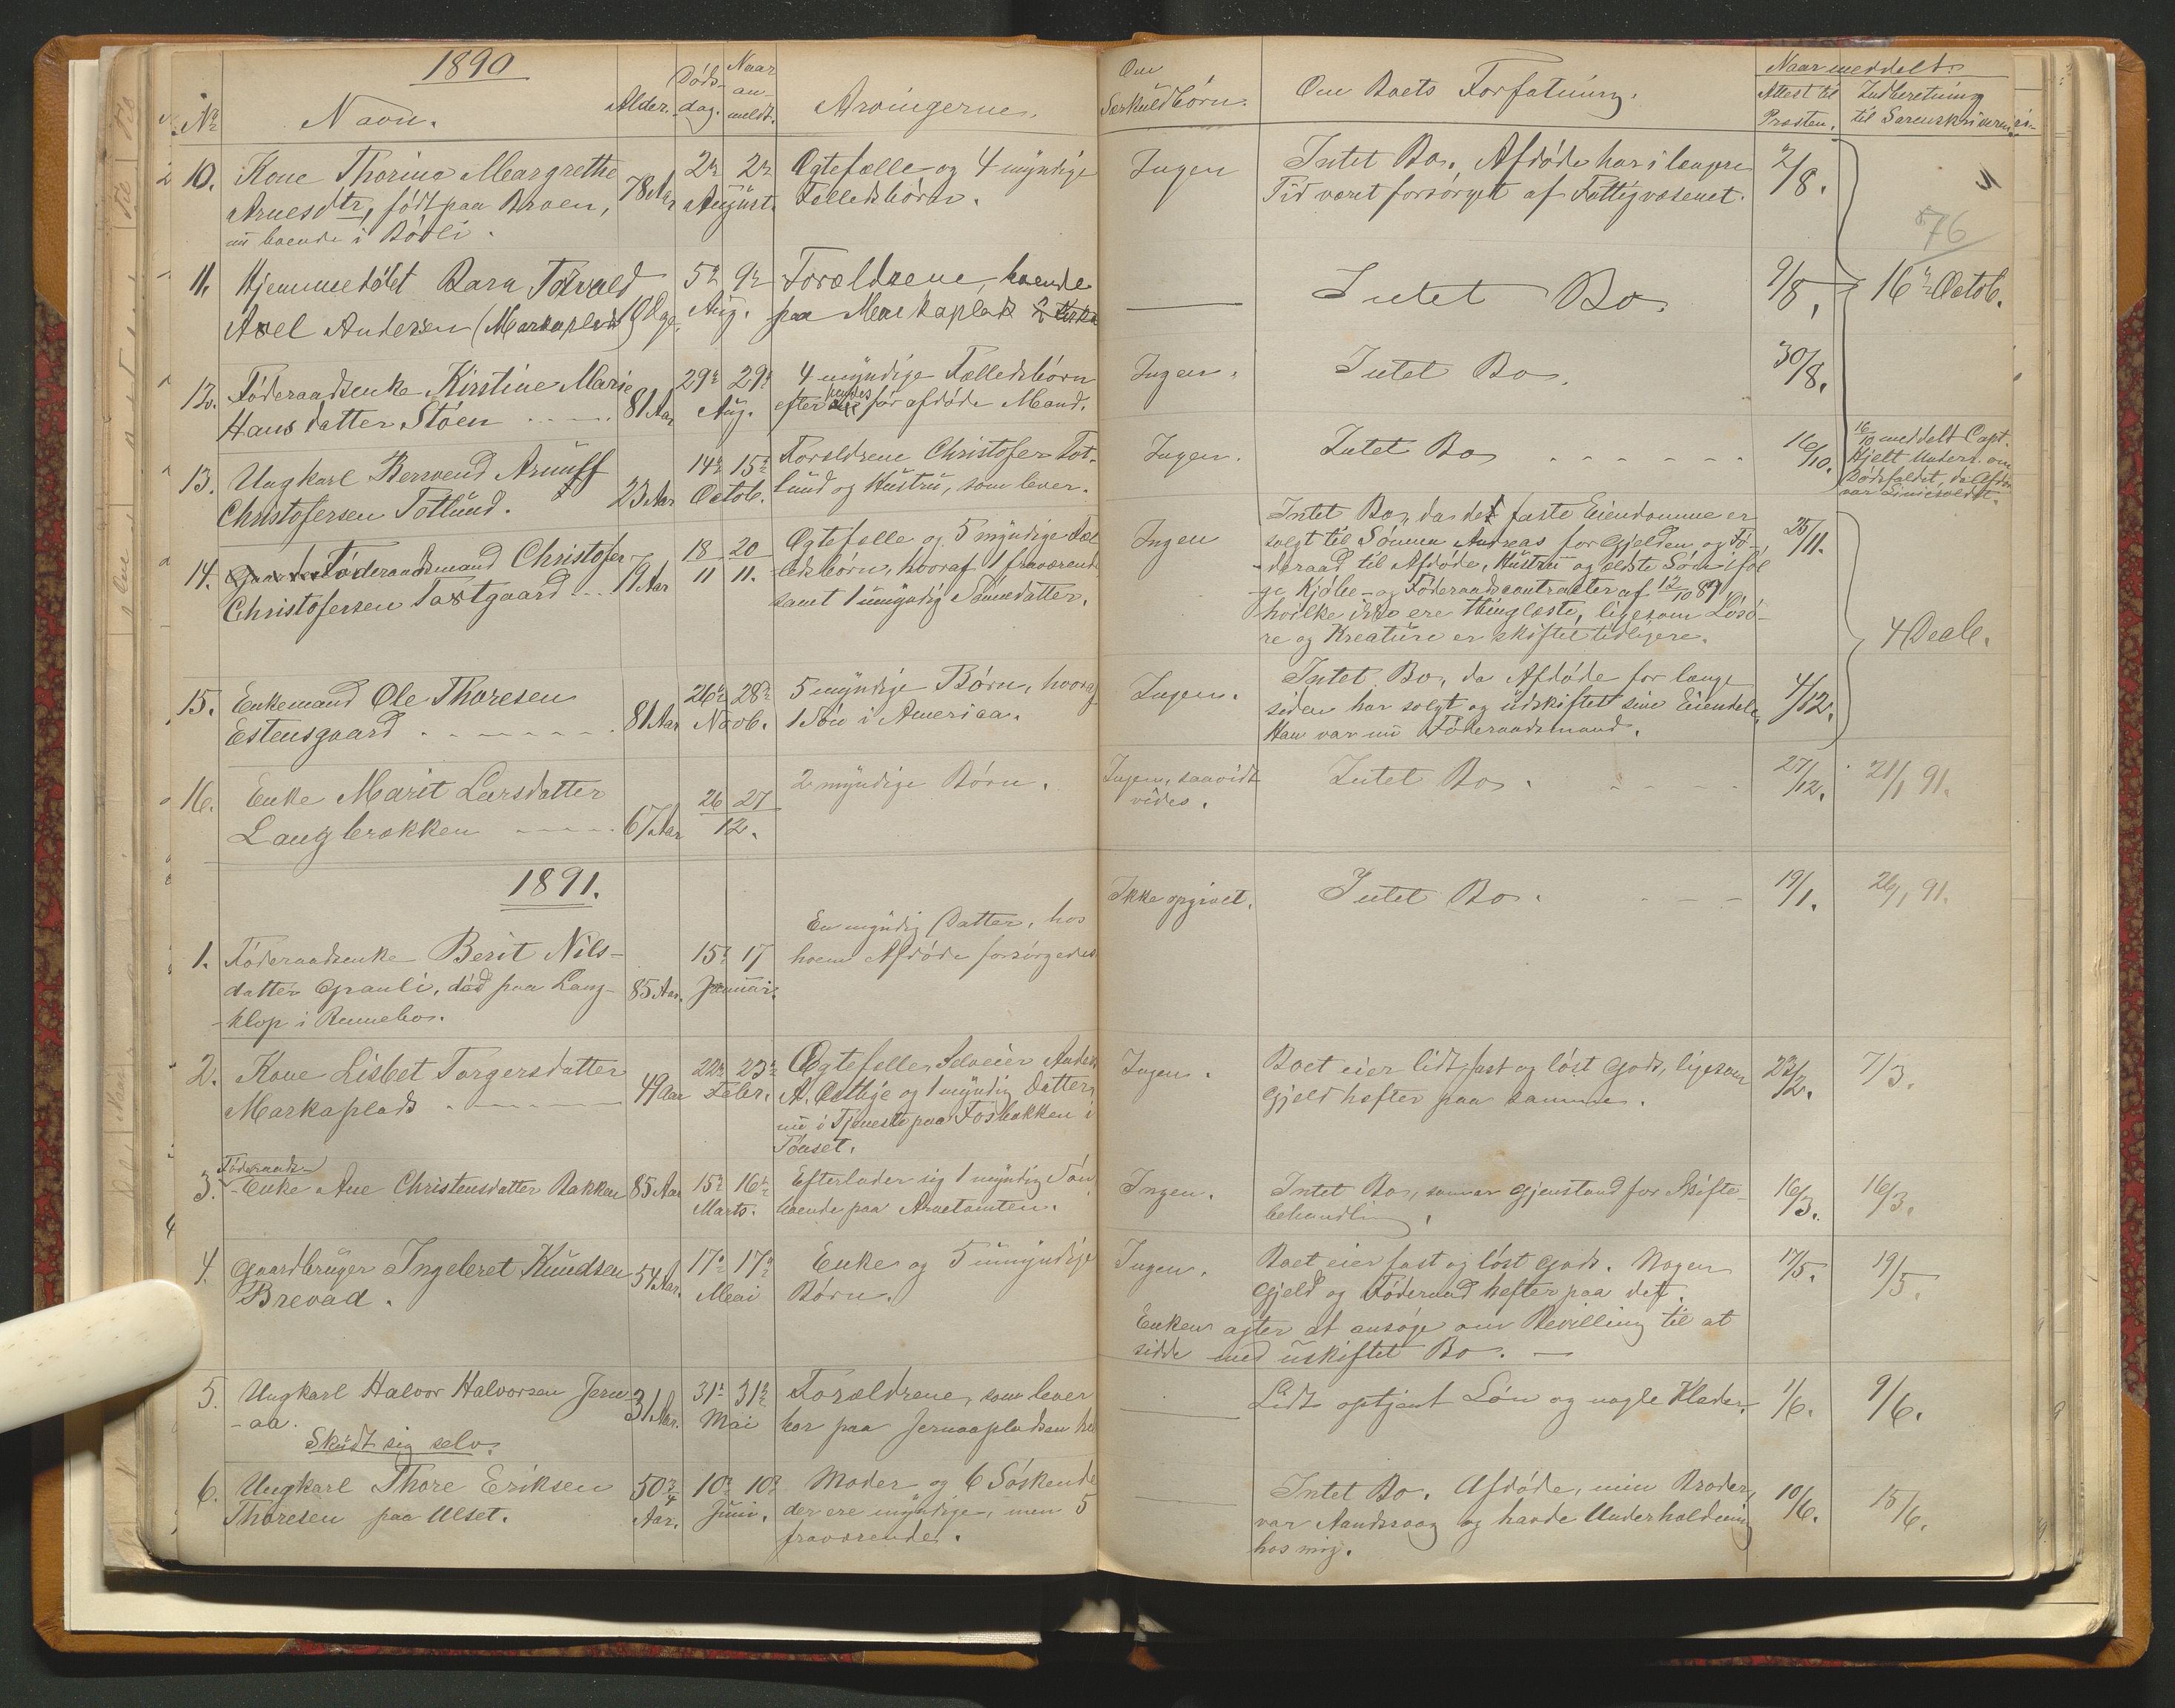 1890
No Navn. Alder. Døds-dag. Naar an-meldt. Arvingerne. Om Særkuldbörn. Om Boets Forfatning. Naar meddelt: Attest til Presten. Indberetning til Sorenskriveren
10. Kone Thorine Margrethe
Arnesdtr, födt paa Broen,
nu boende i Bööli.
78 Aar 2n 2n August. Ægtefælle og 4 myndige
Fælledsbörn.
Ingen
Intet Bo. Afdöde har i længre
Tid været forsörget af Fattigvæsenet.
2/8.
76
11. Hjemmedöbt Barn Torvald
Axel Andersen (Markaplads)
10 Dge. 5n 9n Aug. Forældrene, boende
paa Markaplads
Intet Bo.
9/8. 16n Octob.
12. Föderaadsenke Kirstine Marie
Hansdatter Stöen
81 Aar 29n 29n Aug. 4 myndige Fælledsbörn
efter hendes för afdöde Mand.
Ingen. Intet Bo. 30/8.
13. Ungkarl Bersvend Arnuff
Christofersen Totlund.
23 Aar 14n 15n Octob. Forældrene Christofer Tot-
lund og Hustru, som lever.
Ingen. Intet Bo 16/10.
16/10 meddelt Capt.
Hjelt Underr. om
Dödsfaldet, da Afdöde
var Liniesoldat.
14. Föderaadsmand Christofer
Christofersen Taxtgaard
79 Aar 18 20 11 11. Ægtefælle og 5 myndige Fæl-
ledsbörn, hvoraf 1 fraværende
samt 1 umyndig Sönnedatter.
Ingen
Intet Bo, da det faste Eiendomme er
solgt til Sönnen Andreas for Gjelden og Fö-
deraad til Afdöde, Hustru og ældste Sön iföl-
ge Kjöbe- og Föderaadscontracter af 12/10 89,
hvilke ikke ere thinglæste, ligesom Lösö-
re og Kreature er skiftet tidligere.
25/11. 4 Decb.
15. Enkemand Ole Thoresen
Estensgaard
81 Aar 26n 28n Novb. 5 myndige Börn, hvoraf
1 Sön i America.
Ingen.
Intet Bo, da Afdöde for længe
siden har solgt og udskiftet sine Eiendele.
Han var nu Föderaadsmand.
4/12.
16. Enke Marit Larsdatter
Langbrækken
67 Aar 26 27 12. 2 myndige Börn.
Ingen, saavidt
vides.
Intet Bo. 27/12. 21/1 91.
1891.
1. Föderaadsenke Berit Nils-
datter Grauli, död paa Lang-
-klop i Rennebo.
85 Aar. 15n 17 Januar. En myndig Datter, hos
hvem Afdöde forsörgedes
Ikke opgivet. Intet Bo. 19/1. 26/1 91.
2. Kone Lisbet Torgersdatter
Markaplads
49 Aar 22n 23n Febr. Ægtefælle, Selveier Anders
A. Aethje og 1 myndig Datter,
nu i Tjeneste paa Fosbakken i
Tönset.
Ingen.
Boet eier lidt fast og löst Gods, ligesom
Gjeld hefter paa samme.
23/2. 7/3.
3. Föderaads-
-Enke Ane Christensdatter Bakken
85 Aar 15n 16n Marts. Efterlader sig 1 myndig Sön,
boende paa Arnetomten.
Ingen.
Intet Bo, som er Gjenstand for Skifte-
behandling.
16/3. 16/3.
4. Gaardbruger Ingebret Knudsen
Brevad.
54 Aar. 17n 17n Mai Enke og 5 umyndige
Börn.
Ingen.
Boet eier fast og löst Gods. Nogen
Gjeld og Föderaad hefter paa det.
Enken agter at ansöge om Bevilling til at
sidde med uskiftet Bo. —
17/5. 19/5.
5. Ungkarl Halvor Halvorsen Jern-
-aa.
Skudt sig selv.
31 Aar. 31n 31n Mai Forældrene, som lever
bor paa Jernaapladsen her
Lidt optjent Lön og nogle Klæder.
1/6. 9/6.
6. Ungkarl Thore Eriksen
Thoresen paa Ulset.
50 3/4 Aar. 10n 10n Juni. Moder og 6 Söskende
der ere myndige, men 5
fraværende.
Intet Bo. Afdöde, min Broder,
var Aandssvag og havde Underholdning
hos mig.
10/6. 15/6.